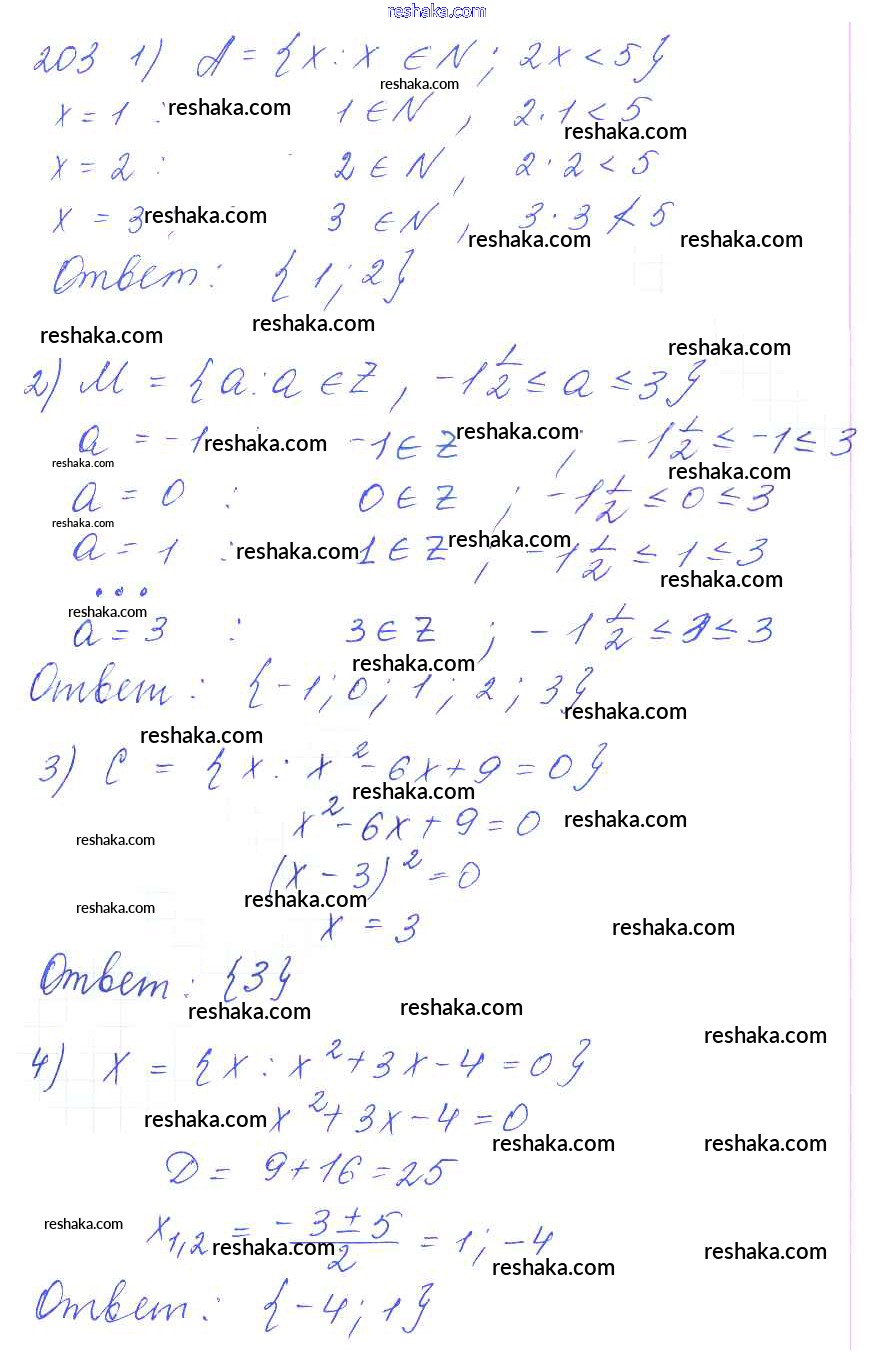 reshaka.com
203 1) A = {x : x ∈ N ; 2x < 5}
reshaka.com
x = 1 : reshaka.com 1 ∈ N , 2·1 < 5
reshaka.com
x = 2 : 2 ∈ N , 2·2 < 5
x = 3 reshaka.com 3 ∈ N , 3·3 ≮ 5
reshaka.com reshaka.com
Ответ: {1; 2}
reshaka.com reshaka.com reshaka.com
2) M = {a : a ∈ Z , -1 1/2 ≤ a ≤ 3}
a = -1 reshaka.com -1 ∈ Z reshaka.com ; -1 1/2 ≤ -1 ≤ 3
reshaka.com reshaka.com
a = 0 : 0 ∈ Z ; -1 1/2 ≤ 0 ≤ 3
reshaka.com
a = 1 : reshaka.com 1 ∈ Z reshaka.com ; -1 1/2 ≤ 1 ≤ 3
reshaka.com
...
reshaka.com
a = 3 : 3 ∈ Z ; -1 1/2 ≤ 3 ≤ 3
reshaka.com
Ответ: {-1; 0; 1; 2; 3}
reshaka.com
reshaka.com
3) C = {x : x² - 6x + 9 = 0}
reshaka.com
x² - 6x + 9 = 0 reshaka.com
reshaka.com
(x - 3)² = 0
reshaka.com reshaka.com
x = 3 reshaka.com
Ответ: {3}
reshaka.com reshaka.com
reshaka.com
4) X = {x : x² + 3x - 4 = 0}
reshaka.com x² + 3x - 4 = 0
reshaka.com reshaka.com
D = 9 + 16 = 25
reshaka.com x₁,₂ = reshaka.com (-3 ± 5)/2 = 1; -4 reshaka.com
reshaka.com
Ответ: {-4; 1}